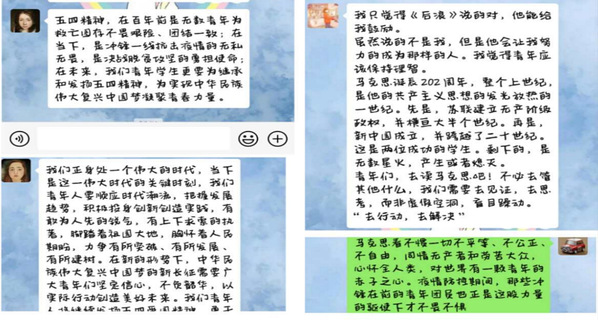 五四精神，在百年前是无数青年为
救亡图存不畏艰险、团结一致；在
当下，是冲锋一线抗击疫情的无私
无畏，是决战脱贫攻坚的勇担使命；
在未来，我们青年学生更要为继承
和发扬五四精神，为实现中华民族
伟大复兴中国梦凝聚着力量。
我们正身处一个伟大的时代，当下
是这一伟大时代的关键时刻，我们
青年人要顺应时代和流，把握发展
趋势，积极投身创新创造实践，有
敢为人先的锐气，有上下求索的执
着，脚踏着祖国大地，胸怀着人民
期盼，力争有所突破、有所发展、
有所建树。在新的形势下，中华民
族伟大复兴中国梦的新长征需要广
大青年们坚定信心，不负韶华，以
实际行动创造美好未来。我们青年
我只觉得《后浪》说的对，他能给
我鼓励。
虽然说的不是我，但是他会让我努
力的成为那样的人。我觉得青年应
该保持理智。
马克思诞辰202周年，整个上世纪，
是他的共产主义思想的发光散热的
一世纪。先是，苏联建立无产阶级
政权，并横亘大半个世纪。再是，
新中国成立，并跨越了二十世纪。
这是两位成功的学生。剩下的，是
无数星火，产生或者熄灭。
青年们，去读马克思吧！不必去管
其他什么，我们需要去见证，去思
考，而非虚假空洞，盲目躁动。
“去行动，去解决”
马克思看不惯一切不平等、不公正、
不自由，同情无产者和劳苦大众，
心怀全人类，对世界有一颗青年的
赤子之心。疫情防控期间，那些冲
锋在前的青年团员也正是这股力量
的驱使下才不畏不惧